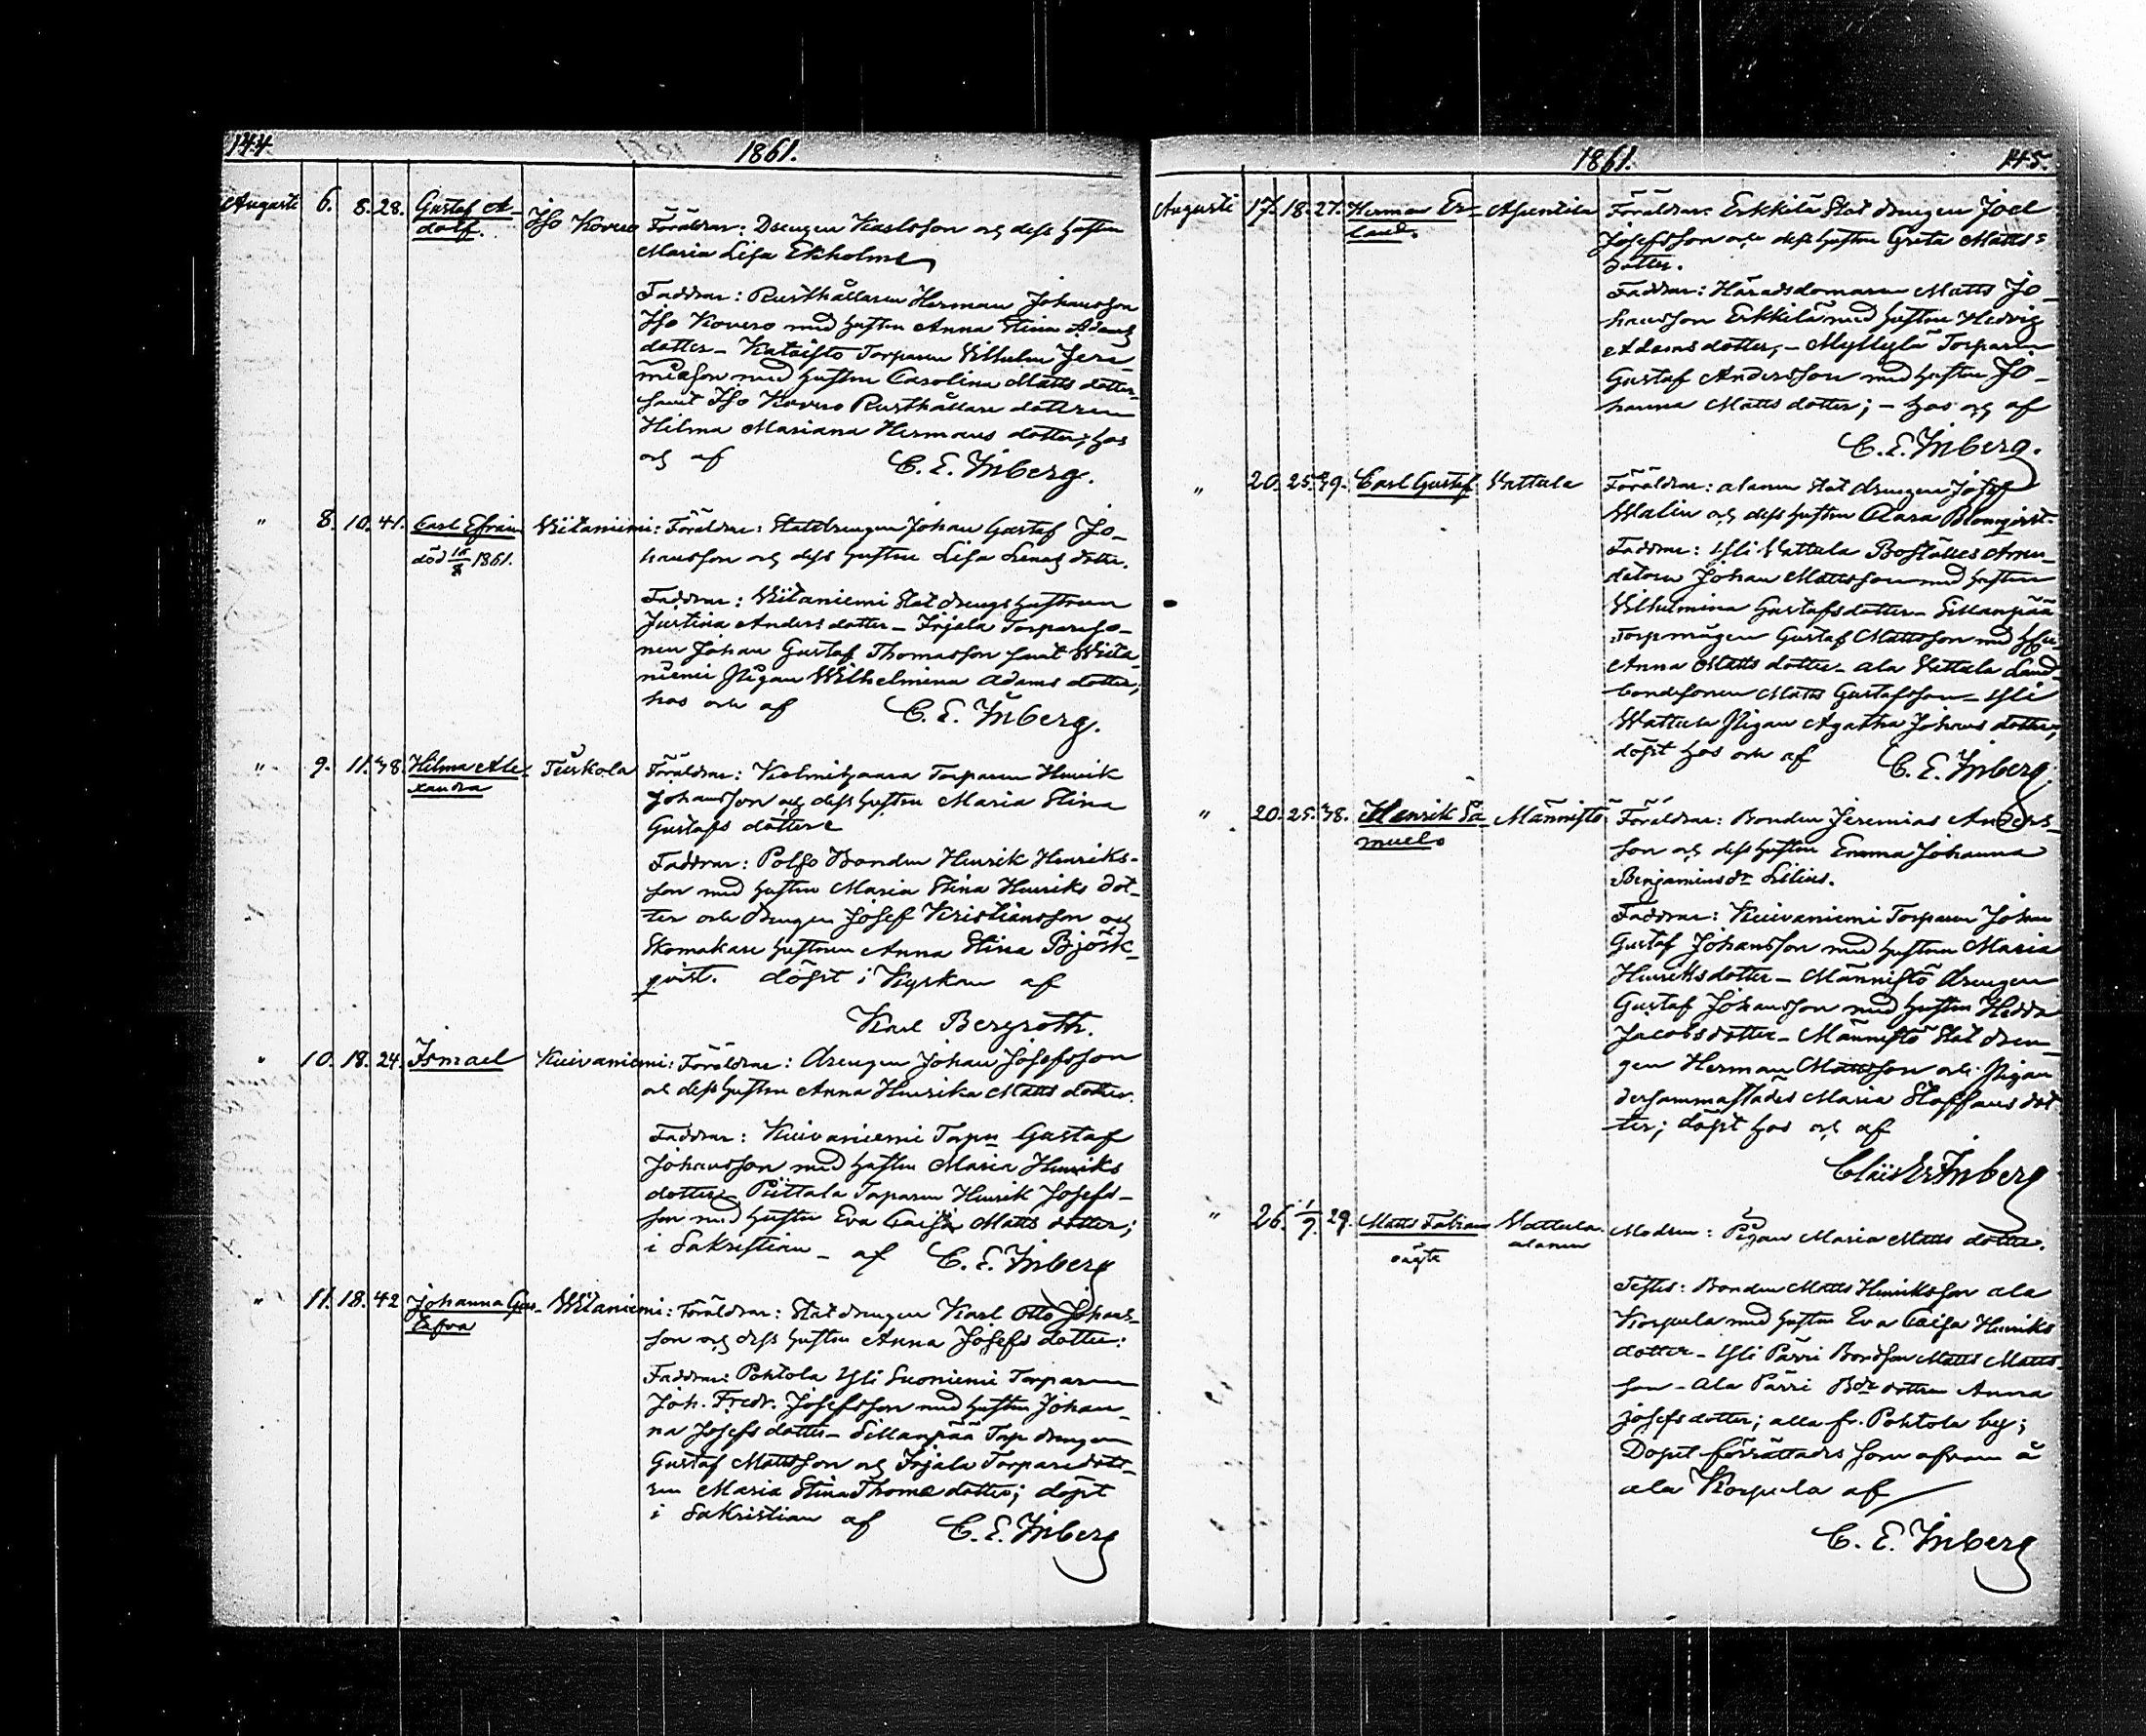 144.
1861.
Augusti 6. 8. 28. Gustaf A- Iso Kovero Föräldrar: Drengen Karlsson och dess hustru
dolf.
Maria Lisa Ekholm
Faddrar: Rusthållaren Herman Johansson
Iso Kovero med hustru Anna Stina Adams
dotter – Kataisto Torparen Vilhelm Jere-
miasson med hustru Carolina Matts dotter
samt Iso Kovero Rusthållare dottren
Hilma Mariana Hermans dotter; hos
och af C. E. Inberg.
" 8. 10. 41. Carl Efraim Viitaniemi: Föräldrar: Statdrengen Johan Gustaf Jo-
död 15/8 1861. hansson och dess hustru Lisa dotter.
Faddrar: Viitaniemi Stat drengs hustrun
Justina Anders dotter – Irjala Torpareso-
nen Johan Gustaf Thomasson samt Viita-
niemi Pigan Wilhelmina Adams dotter;
hos och af C. E. Inberg.
" 9. 11. 38. Hilma Ale- Turkola Föräldrar: Torparen Henrik
xandra Johansson och dess hustru Maria Stina
Gustafs dotter
Faddrar: Polso Bonden Henrik Henriks-
son med hustru Maria Stina Henriks dot-
ter och drengen Josef Kristiansson och
Skomakare hustrun Anna Stina Björk-
qvist. döpt i Kyrkan af
Karl Bergroth.
" 10. 18. 24. Ismael Kuivaniemi: Föräldrar: Drengen Johan Josefsson
och dess hustru Anna Henrika Matts dotter.
Faddrar: Kuivaniemi Torpn Gustaf
Johansson med hustru Maria Henriks
dotter – Piittala Torparen Henrik Josefs-
son med hustru Eva Caisa Matts dotter;
i Sakristian – af C. E. Inberg
" 11. 18. 42 Johanna Gus- Viitaniemi: Föräldrar: Stat drengen Karl Otto Johans-
tafva son och dess hustru Anna Josefs dotter:
Faddrar: Pohtola Yli Suoniemi Torparen
Joh. Fredr. Josefsson med hustru Johan-
na Josefs dotter – Sillanpää Torp drengen
Gustaf Mattsson och Irjala Torparedott-
ren Maria Stina Thoma dotter; döpt
i Sakristian af C. E. Inberg
1861. 145.
Augusti 17. 18. 27. Herman Er- Föräldrar: Erkkilä Stat drengen Joel
land. Josefsson och dess hustru Greta Matts-
dotter.
Faddrar: Häradsdomaren Matts Jo-
hansson Erkkilä med hustru Hedvig
Adamsdotter, – Myllylä Torparen
Gustaf Andersson med hustru Jo-
hanna Matts dotter; – hos och af
C. E. Inberg.
" 20. 25. 39. Carl Gustaf. Vattula Föräldrar: alanen Stat drengen Josef
Walin och dess hustru Clara Blomqvist.
Faddrar: Yli Vattula Boställes Arren-
datorn Johan Mattsson med hustru
Vilhelmina Gustafsdotter – Sillanpää
Torpmågen Gustaf Mattsson med hstru
Anna Matts dotter – ala Vattula Land-
bondesonen Matts Gustafsson – Yli
Wattula Pigan Agatha Johans dotter;
döpt hos och af C. E. Inberg.
" 20. 25. 38. Henrik Sa- Männistö Föräldrar: Bonden Jeremias Anders-
muel. son och dess hustru Emma Johanna
Benjaminsdr Lilius.
Faddrar: Kuivaniemi Torparen Johan
Gustaf Johansson med hustru Maria
Henriksdotter – Männistö drengen
Gustaf Johansson med hustru Hedda
Jacobsdotter – Männistö Stat dren-
gen Herman Mattsson och Pigan
dersammastädes Maria Staffans dot-
ter; döpt hos och af
Inberg
" 26. 1/9. 29. Matts Fabian Vattula Modren: Pigan Maria Matts dotter.
oägta alanen
Testes: Bonden Matts Henriksson ala
Korpula med hustru Eva Caisa Henriks
dotter – Yli Pärri Bondson Matts Matts-
son – Ala Pärri Bde dottren Anna
Josefs dotter; alla fr. Pohtola by;
Dopet förrättades som ofvan å
ala Korpula af
C. E. Inberg